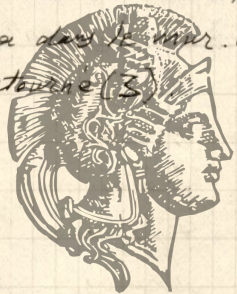 dans le mur.
tourné (3).